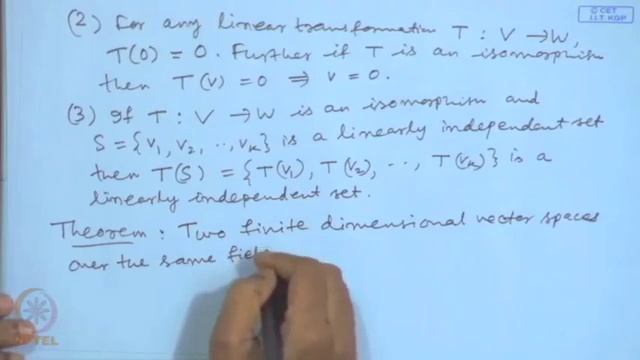 © CET
I.I.T. KGP
(2) For any linear transformation T : V → W,
T(0) = 0. Further if T is an isomorphism
then T(v) = 0 ⇒ v = 0.
(3) If T : V → W is an isomorphism and
S = {v₁, v₂, .., vₖ} is a linearly independent set
then T(S) = {T(v₁), T(v₂), .., T(vₖ)} is a
linearly independent set.
Theorem : Two finite dimensional vector spaces
over the same field
NPTEL